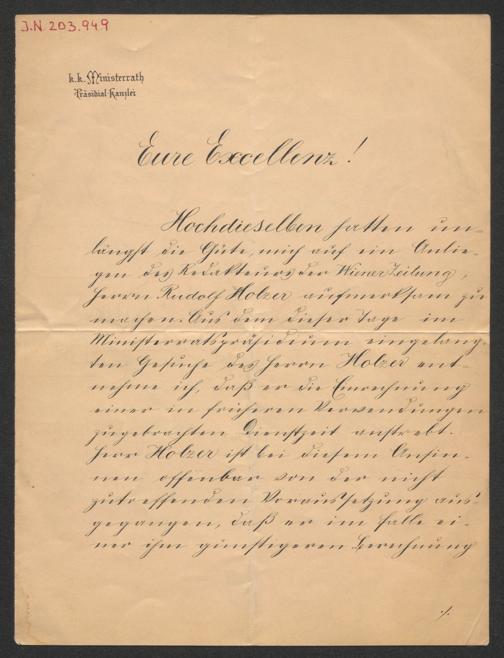 J.N. 203.949
k.k. Ministerrath
Präsidial-Kanzlei
Eure Excellenz!
Hochdieselben hatten un-
längst die Güte, mich auf ein Anlie-
gen des Redakteurs der Wiener Zeitung,
Herrn Rudolf Holzer aufmerksam zu
machen. Aus dem dieser Tage im
Ministerratspräsidium eingelang-
ten Gesuche des Herrn Holzer ent-
nehme ich, daß er die Einrechnung
einer in früheren Verwendungen
zugebrachten Dienstzeit anstrebt.
Herr Holzer ist bei diesem Ansin-
nen offenbar von der nicht
zutreffenden Voraussetzung aus-
gegangen, daß er im Falle ei-
ner ihm günstigeren Berechnung
./.